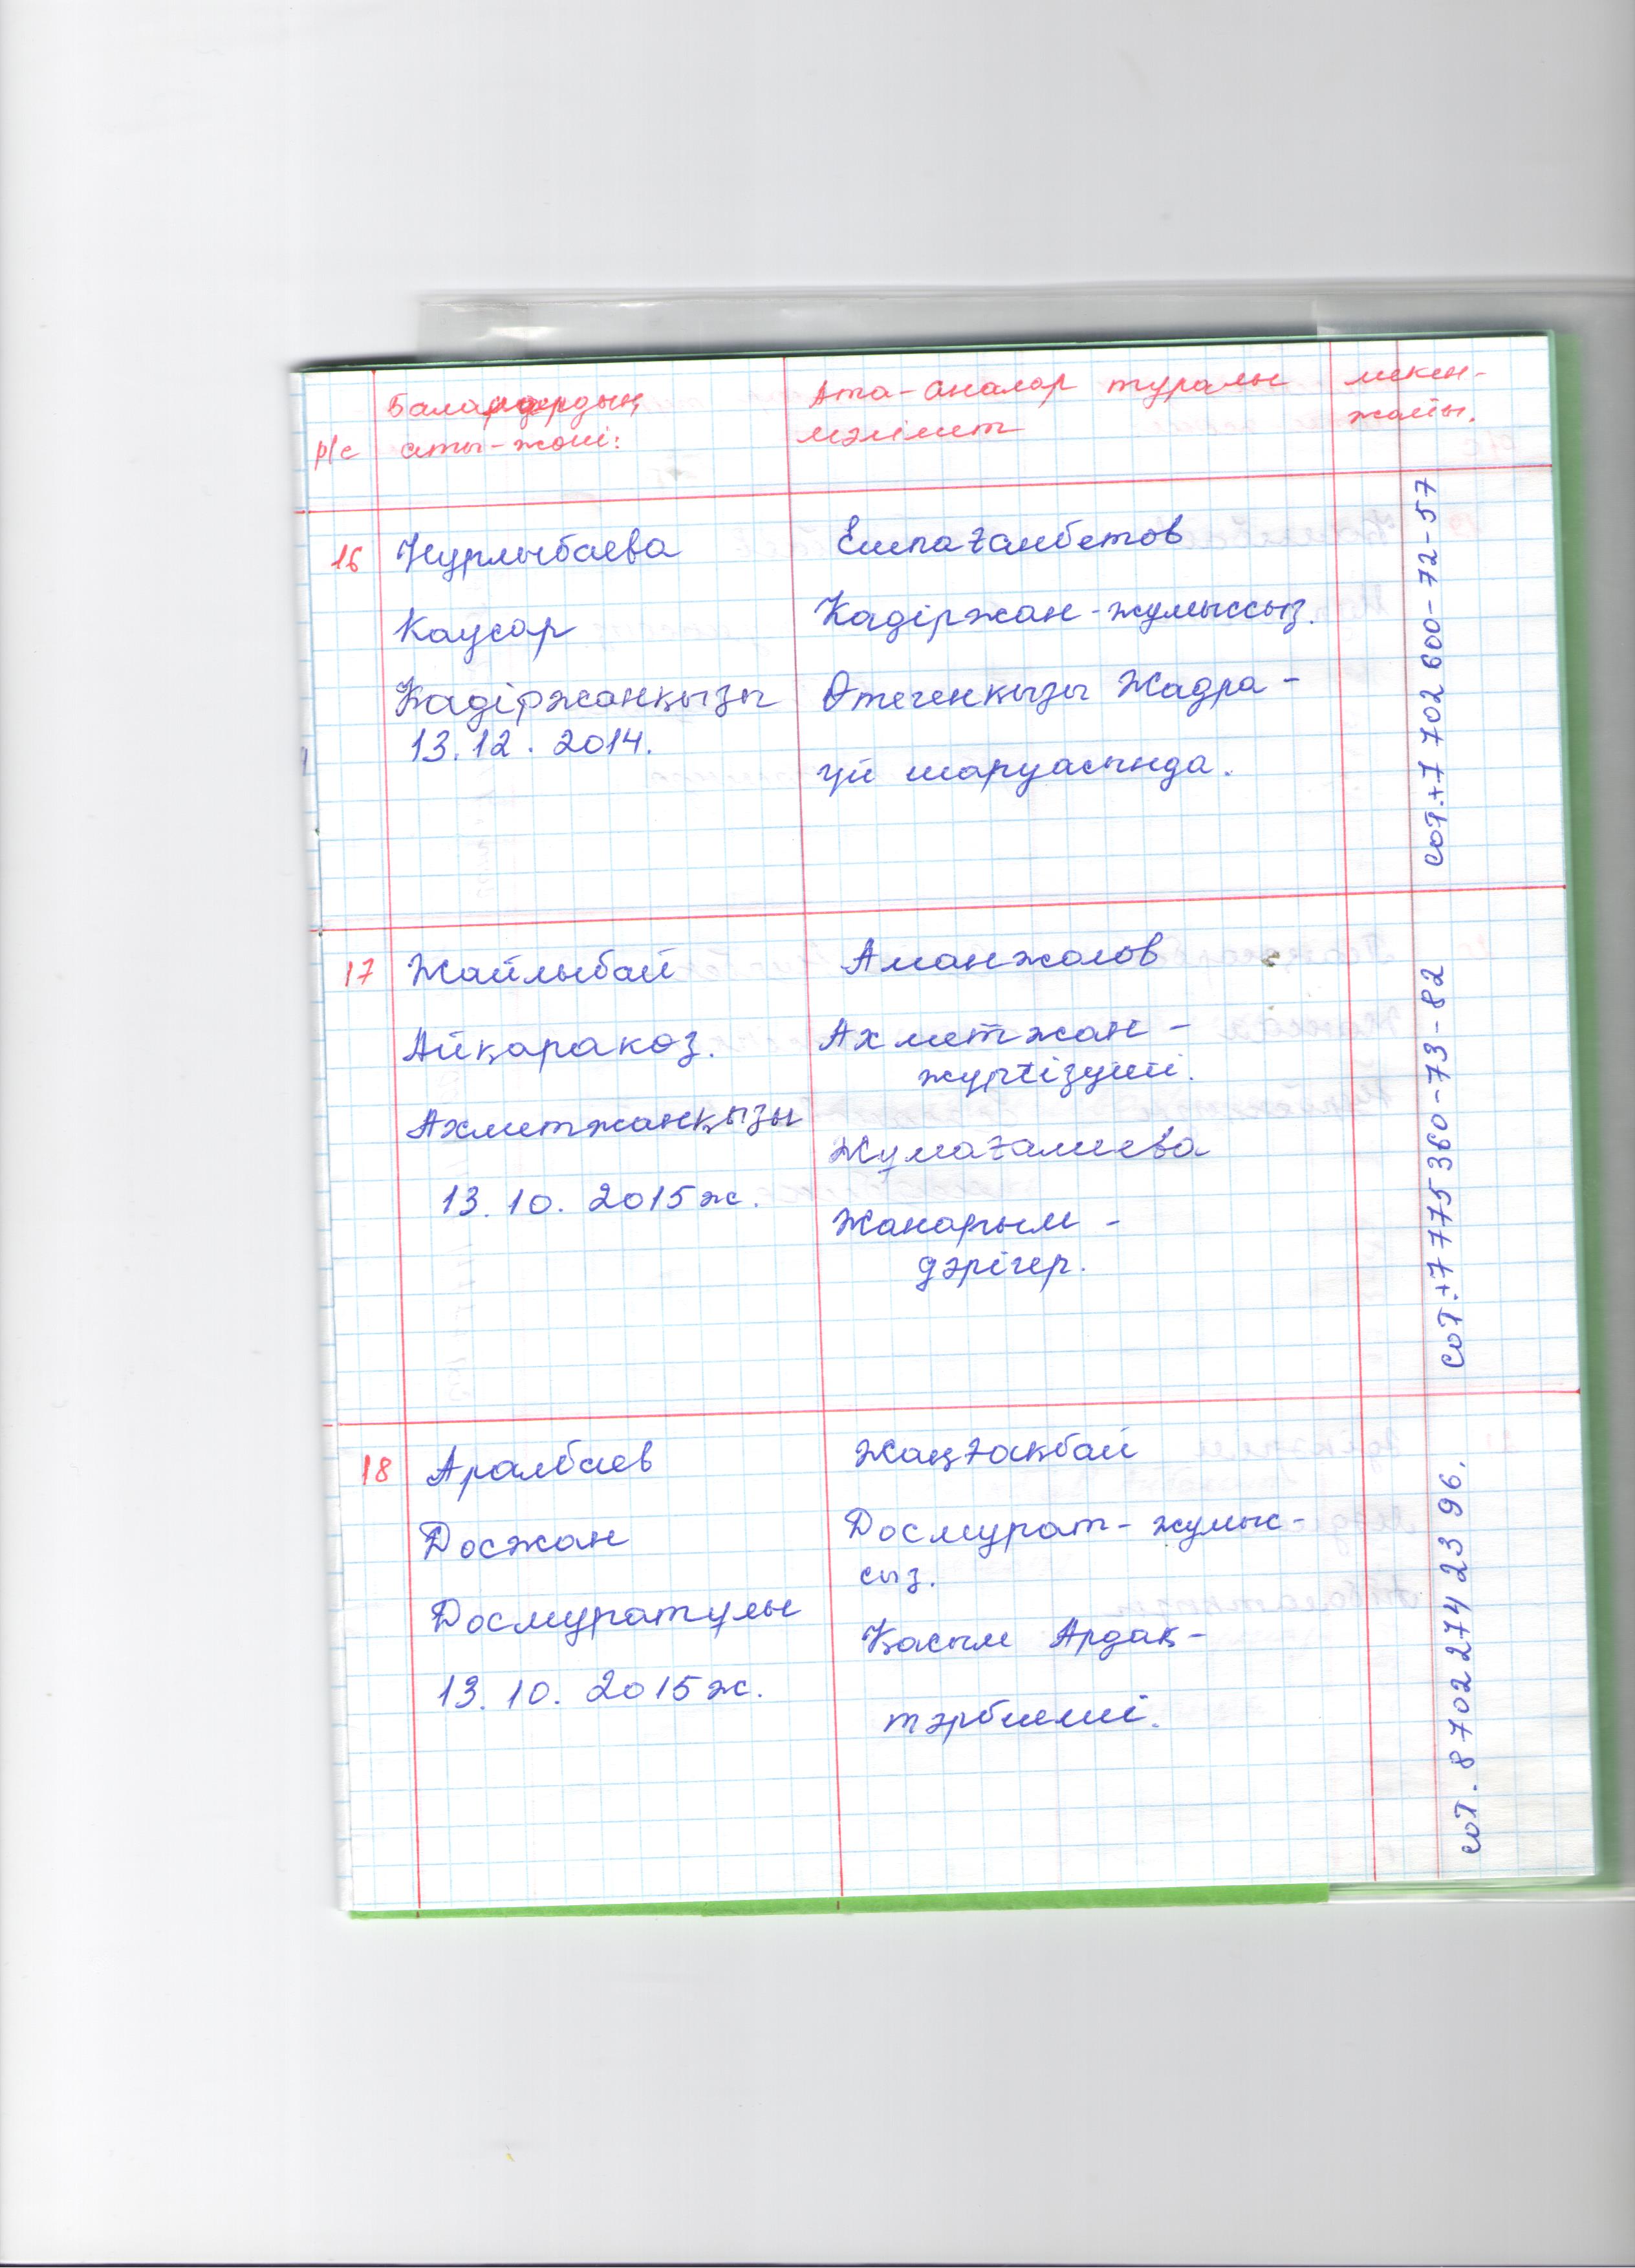 р/с
Балалардың
аты-жөні:
Ата-аналар туралы
мәлімет
мекен-
жайы.
16
Нурлыбаева
Каусар
Кадіржанқызы
13.12. 2014.
Ешпағанбетов
Кадіржан-жұмыссыз.
Өтегенқызы Жадра-
үй шаруасында.
сот.+7 702 600-72-57
17
Жайлыбай
Айқаракөз.
Ахметжанқызы
13. 10. 2015ж.
Аманжолов
Ахметжан -
жүргізуші.
Жұмағалиева
Жанарым -
дәрігер.
сот.+7 775 360-73-82
18
Аралбаев
Досжан
Досмуратұлы
13. 10. 2015ж.
Жаңғақбай
Досмурат- жұмыс-
сыз.
Қасым Ардақ-
тәрбиеші.
сот. 8 702 274 23 96.